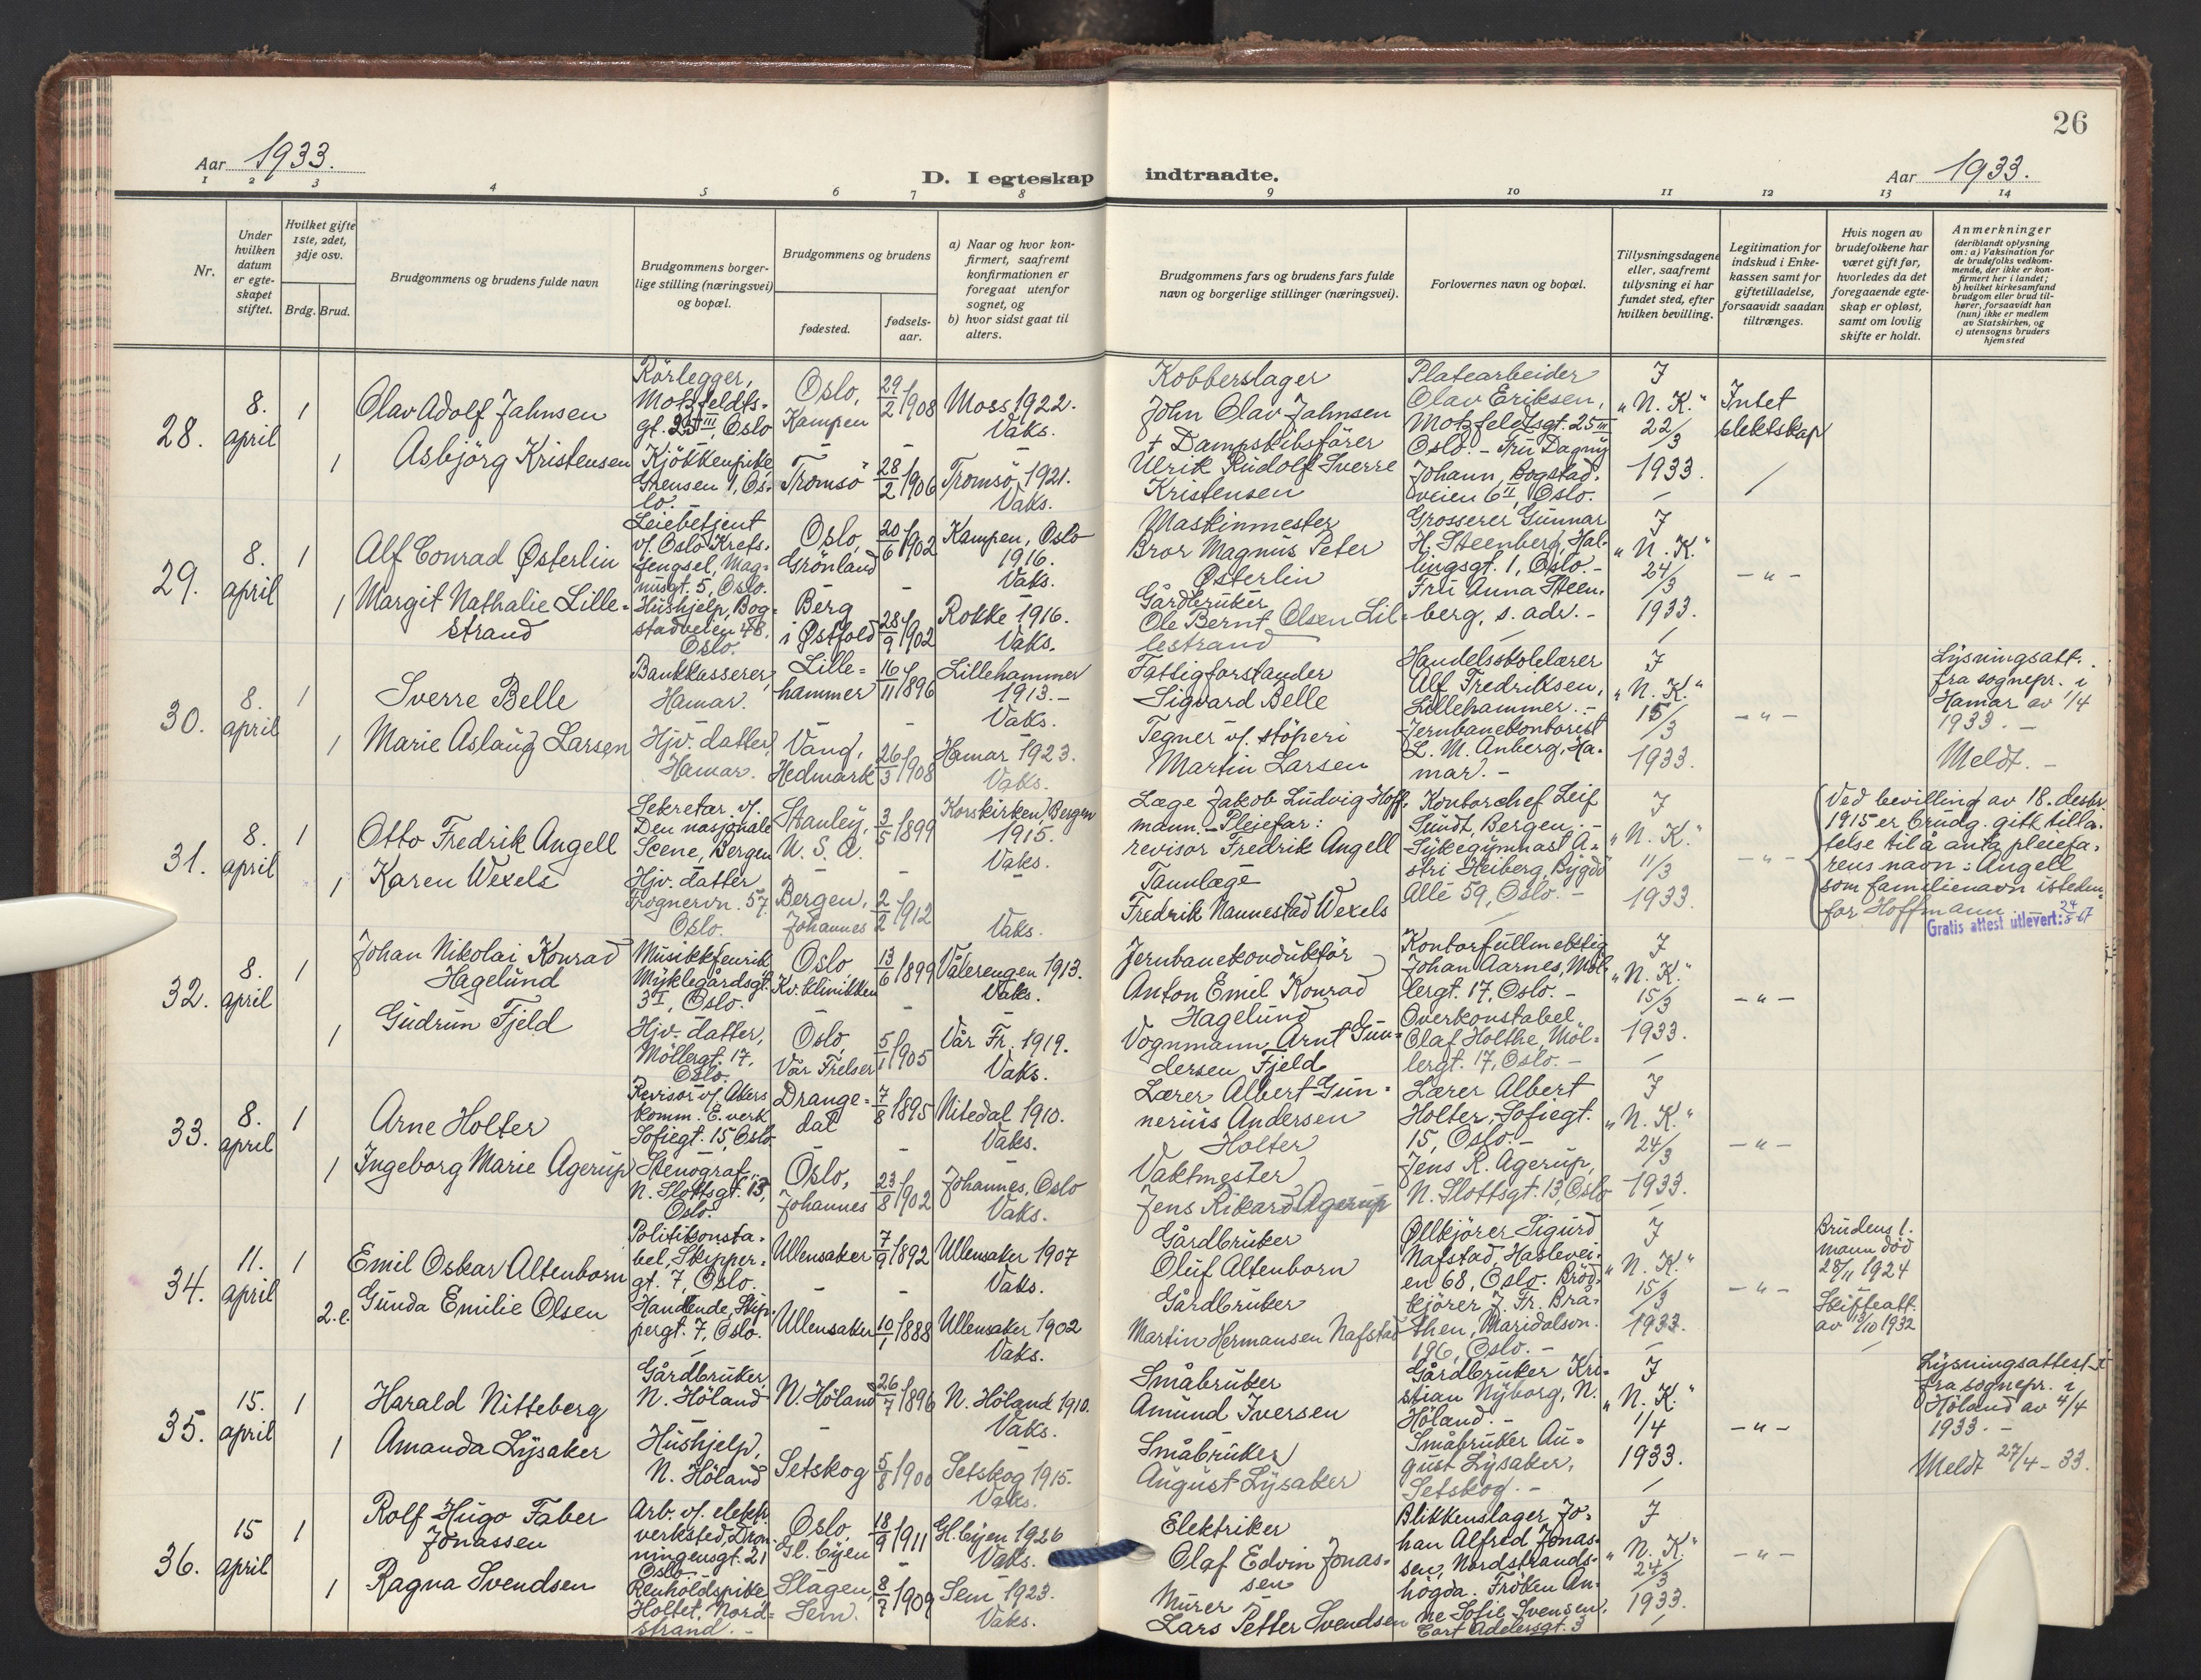 26
Aar 1933.
D. I egteskap indtraadte.
Aar 1933.
1 2 3 4 5 6 7 8 9 10 11 12 13 14
Nr.
Under hvilken datum er egte-skapet stiftet.
Hvilket gifte 1ste, 2det, 3dje osv.
Brdg. Brud.
Brudgommens og brudens fulde navn
Brudgommens borger-lige stilling (næringsvei) og bopæl.
Brudgommens og brudens
fødested.
fødsels-aar.
a) Naar og hvor kon-firmert, saafremt konfirmationen er foregaat utenfor sognet, og
b) hvor sidst gaat til alters.
Brudgommens fars og brudens fars fulde navn og borgerlige stillinger (næringsvei).
Forlovernes navn og bopæl.
Tillysningsdagene eller, saafremt tillysning ei har fundet sted, efter hvilken bevilling.
Legitimation for indskud i Enke-kassen samt for giftetilladelse, forsaavidt saadan tiltrænges.
Hvis nogen av brudefolkene har været gift før, hvorledes da det foregaaende egte-skap er opløst, samt om lovlig skifte er holdt.
Anmerkninger (deriblandt oplysning om: a) Vaksination for de brudefolks vedkom-mende, der ikke er kon-firmert her i landet; b) hvilket kirkesamfund brudgom eller brud til-hører, forsaavidt han (hun) ikke er medlem av Statskirken, og c) utensogns bruders hjemsted
28.
8. april
1
Olav Adolf Jahnsen
Rørlegger, Motzfeldts-gt. 25 III Oslo
Oslo, Kampen
29/2 1908
Moss 1922. Vaks.
Kobberslager John Olav Jahnsen
Platearbeider Olav Eriksen, Motzfeldtsgt. 25 III Oslo. - Fru Dagny Johann, Bogstad-veien 6 II, Oslo.
I "N. K." 22/3 1933.
Intet slektskap
1
Asbjörg Kristensen
Kjökkenpike Grensen 1, Os-lo.
Tromsö
28/2 1906
Tromsö 1921. Vaks.
+ Dampskibsförer Ulrik Rudolf Sverre Kristensen
29.
8. april
1
Alf Conrad Østerlin
v/ Oslo Krets-fengsel, Mag-nusgt. 5, Oslo.
Oslo, Grönland
20/6 1902
Kampen, Oslo 1916. Vaks.
Maskinmester Bror Magnus Peter Østerlin
Grosserer Gunnar H. Steenberg, Hal-lingsgt. 1, Oslo. - Fru Anna Steen-berg, s. adr. -
I "N. K." 24/3 1933.
- " -
1
Margit Nathalie Lille-strand
Hushjelp, Bog-stadveien 48, Oslo.
Berg i Østfold
28/9 1902
Rokke 1916. Vaks.
Gårdbruker Ole Bernt Olsen Lil-lestrand
30.
8. april
1
Sverre Belle
Bankkasserer, Hamar.
Lille-hammer
16/11 1896
Lillehammer 1913. - Vaks.
Fattigforstander Sigvard Belle
Handelsskolelærer Alf Fredriksen, Lillehammer. - Jernbanekontorist L. M. Anberg, Ha-mar. -
I "N. K." 15/3 1933.
- " -
Lysningsatt. fra sognepr. i Hamar av 1/4 1933. - Meldt. -
1
Marie Aslaug Larsen
Hjv. datter, Hamar.
Vang, Hedmark
26/3 1908
Hamar 1923. Vaks.
Tegner v/ stöperi Martin Larsen
31.
8. april
1
Otto Fredrik Angell
Sekretær v/ Den nasjonale Scene, Bergen
Stanley, U. S. A.
3/5 1899
Korskirken, Bergen 1915. Vaks.
Læge Jakob Ludvig Hoff-mann. - Pleiefar: revisor Fredrik Angell
Kontorchef Leif Sundt, Bergen. - Sykegymnast A-stri Heiberg, Bygdö Allé 59, Oslo. -
I "N. K." 11/3 1933.
- " -
Ved bevilling av 18. desbr. 1915 er brudg. gitt tilla-telse til å anta pleiefa-rens navn: Angell som familienavn isteden-for Hoffmann.
Gratis attest utlevert: 24/5 67
1
Karen Wexels
Hjv. datter Frognervn. 57, Oslo.
Bergen, Johannes
2/2 1912
Vaks.
Tannlæge Fredrik Nannestad Wexels
32.
8. april
1
Johan Nikolai Konrad Hagelund
Musikkfenrik Myklegårdsgt. 3 I, Oslo.
Oslo, Kv. klinikken
13/6 1899
Vålerengen 1913. Vaks.
Jernbanekonduktör Anton Emil Konrad Hagelund
Kontorfullmektig Johan Aarnes, Möl-lergt. 17, Oslo. - Overkonstabel Olaf Holthe, Möl-lergt. 17, Oslo. -
I "N. K." 15/3 1933.
- " -
1
Gudrun Fjeld
Hjv. datter, Möllergt. 17, Oslo.
Oslo, Vår Frelser
5/1 1905
Vår Fr. 1919. Vaks.
Vognmann Arnt Gun-dersen Fjeld
33.
8. april
1
Arne Holter
Revisor v/ Akers komm. E. verk Sofiegt. 15, Oslo
Drange-dal
7/8 1895
Nitedal 1910. Vaks.
Lærer Albert Gun-nerius Andersen Holter
Lærer Albert Holter, Sofiegt. 15, Oslo. - Jens R. Agerup, N. Slottsgt. 13, Oslo
I "N. K." 24/3 1933.
- " -
1
Ingeborg Marie Agerup
Stenograf, N. Slottsgt. 13, Oslo.
Oslo, Johannes
23/8 1902
Johannes, Oslo Vaks.
Vaktmester Jens Rikard Agerup
34.
11. april
1
Emil Oskar Altenborn
Politikonsta-bel, Skipper-gt. 7, Oslo.
Ullensaker
7/9 1892
Ullensaker 1907 Vaks.
Gårdbruker Oluf Altenborn
Ølkjörer Sigurd Nafstad, Haslevei-en 68, Oslo. Bröd-kjörer J. Fr. Brå-then, Maridalsvn. 196, Oslo. -
I "N. K." 15/3 1933.
- " -
Brudens 1. mann död 28/11 1924 Skifteatt. av 13/10 1932
2. e.
Gunda Emilie Olsen
Handlende, Skip-pergt. 7, Oslo.
Ullensaker
10/1 1888
Ullensaker 1902 Vaks.
Gårdbruker Martin Hermansen Nafstad
35.
15. april
1
Harald Nitteberg
Gårdbruker, N. Höland
N. Höland
26/7 1896
N. Höland 1910. Vaks.
Småbruker Amund Iversen
Gårdbruker Kri-stian Nyborg, N. Höland. - Småbruker Au-gust Lysaker, Setskog. -
I "N. K." 1/4 1933.
- " -
Lysningsattest fra sognepr. i Höland av 4/4 1933. - Meldt 27/4 - 33.
1
Amanda Lysaker
Hushjelp, N. Höland
Setskog
5/8 1900
Setskog 1915. Vaks.
Småbruker August Lysaker
36.
15 april
1
Rolf Hugo Faber Jonassen
Arb. v/ elektr. verksted, Dron-ningensgt. 21 Oslo.
Oslo, Gl. byen
18/9 1911
Gl. byen 1926 Vaks.
Elektriker Olaf Edvin Jonas-sen
Blikkenslager Jo-han Alfred Jonas-sen, Nordstrands-högda. Fröken An-ne Sofie Svensen, Cort Adelersgt. 3
I "N. K." 24/3 1933.
- " -
1
Ragna Svendsen
Renholdspike Holtet, Nord-strand. -
Slagen, Sem.
8/7 1909
Sem 1923. Vaks.
Murer Lars Petter Svendsen